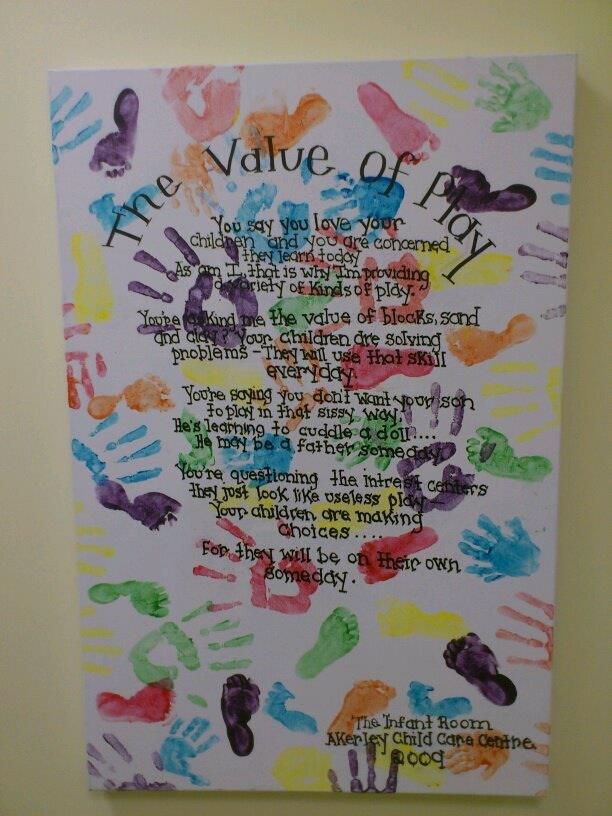 The Value of Play
You say you love your
children and you are concerned
they learn today
As am I, that is why I'm providing
a variety of kinds of play.
You're asking me the value of blocks, sand
and clay? your children are solving
problems - They will use that skill
everyday.
You're saying you don't want your son
to play in that sissy way
He's learning to cuddle a doll....
He may be a father someday
You're questioning the intrest centers
they just look like useless play
Your children are making
Choices....
For they will be on their own
someday.
The Infant Room
Akerley Child Care Centre
2009